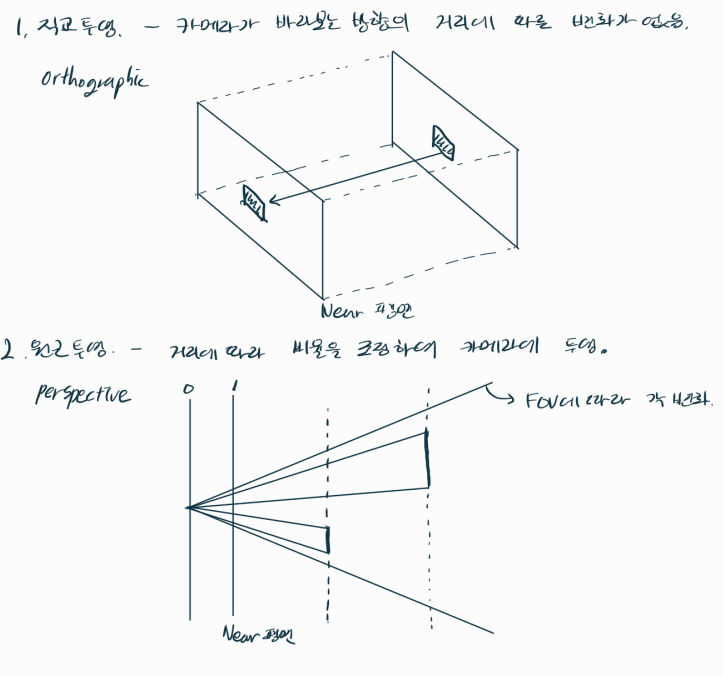 1. 직교투영. - 카메라가 바라보는 방향의 거리에 따른 변화가 없음.
orthographic
Near 평면
2. 원근투영. - 거리에 따라 비율을 조정하여 카메라에 투영.
perspective
0 1
FOV에 따라 각 변화.
Near 평면